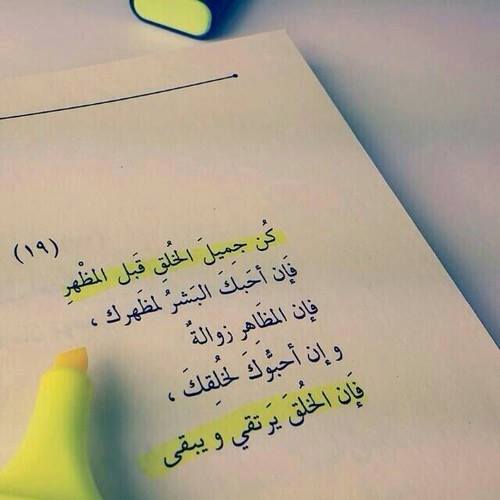 (١٩)
كُن جميلَ الخُلقِ قَبل المظْهرِ
فَإن أحَبكَ البَشرُ لمظَهرك ،
فإن المظَاهر زوالةٌ
و إن أحبُّوَكَ لخُلِقكَ ،
فَإن الخُلقَ يَرتقي و يبقى